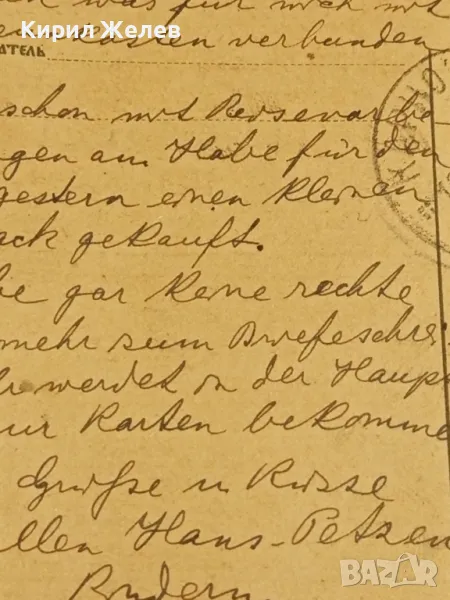 Кирил Желев
en was für mich mit
Kosten verbunden
АТЕЛЬ
schon mit Reisevorbe-
gen am Habe für den
gestern einen kleinen
ack gekauft.
be gar keine rechte
mehr zum Briefeschrei-
hr werdet in der Haupt
ur Karten bekomme
Grüße u Küsse
llen Hans-Petzen
Brudern.
bazar.bg